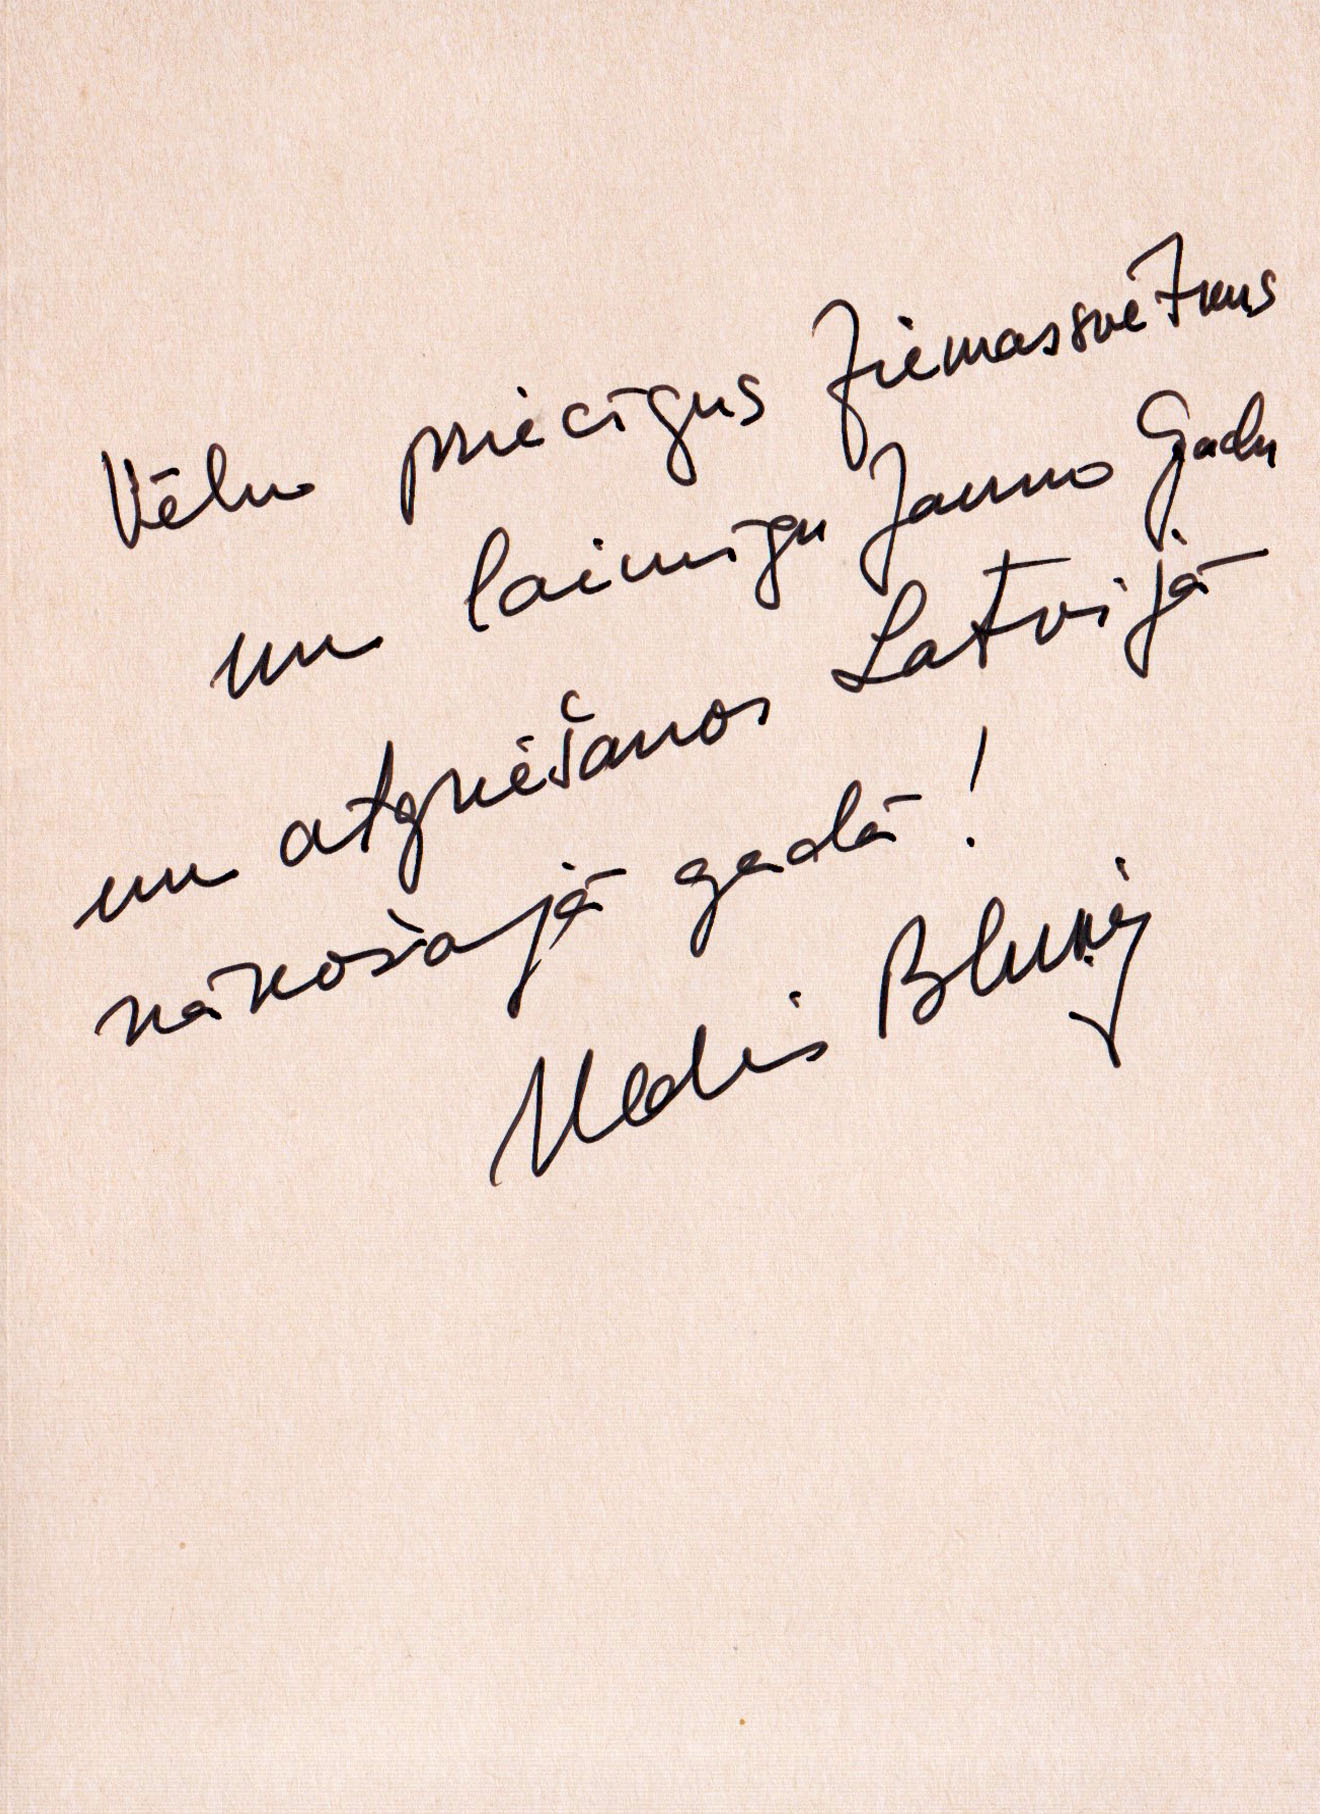 Vēlu priecīgus Ziemassvētkus
un laimīgu Jauno Gadu
un atgriešanos Latvijā
nākošajā gadā!